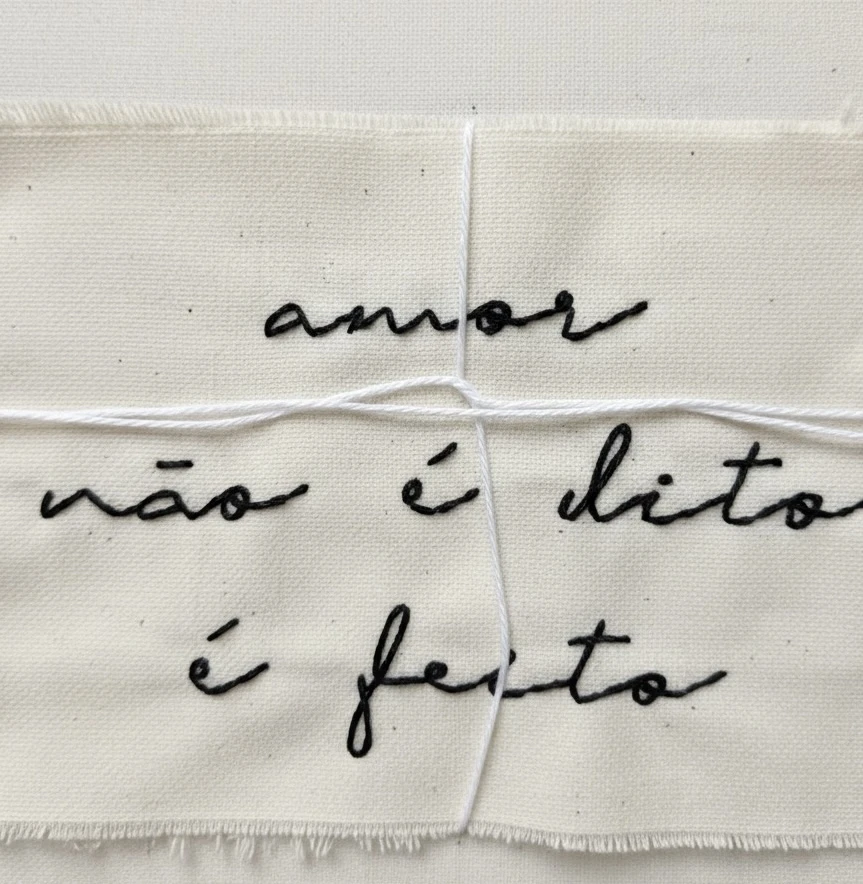 amor
não é dito
é feito